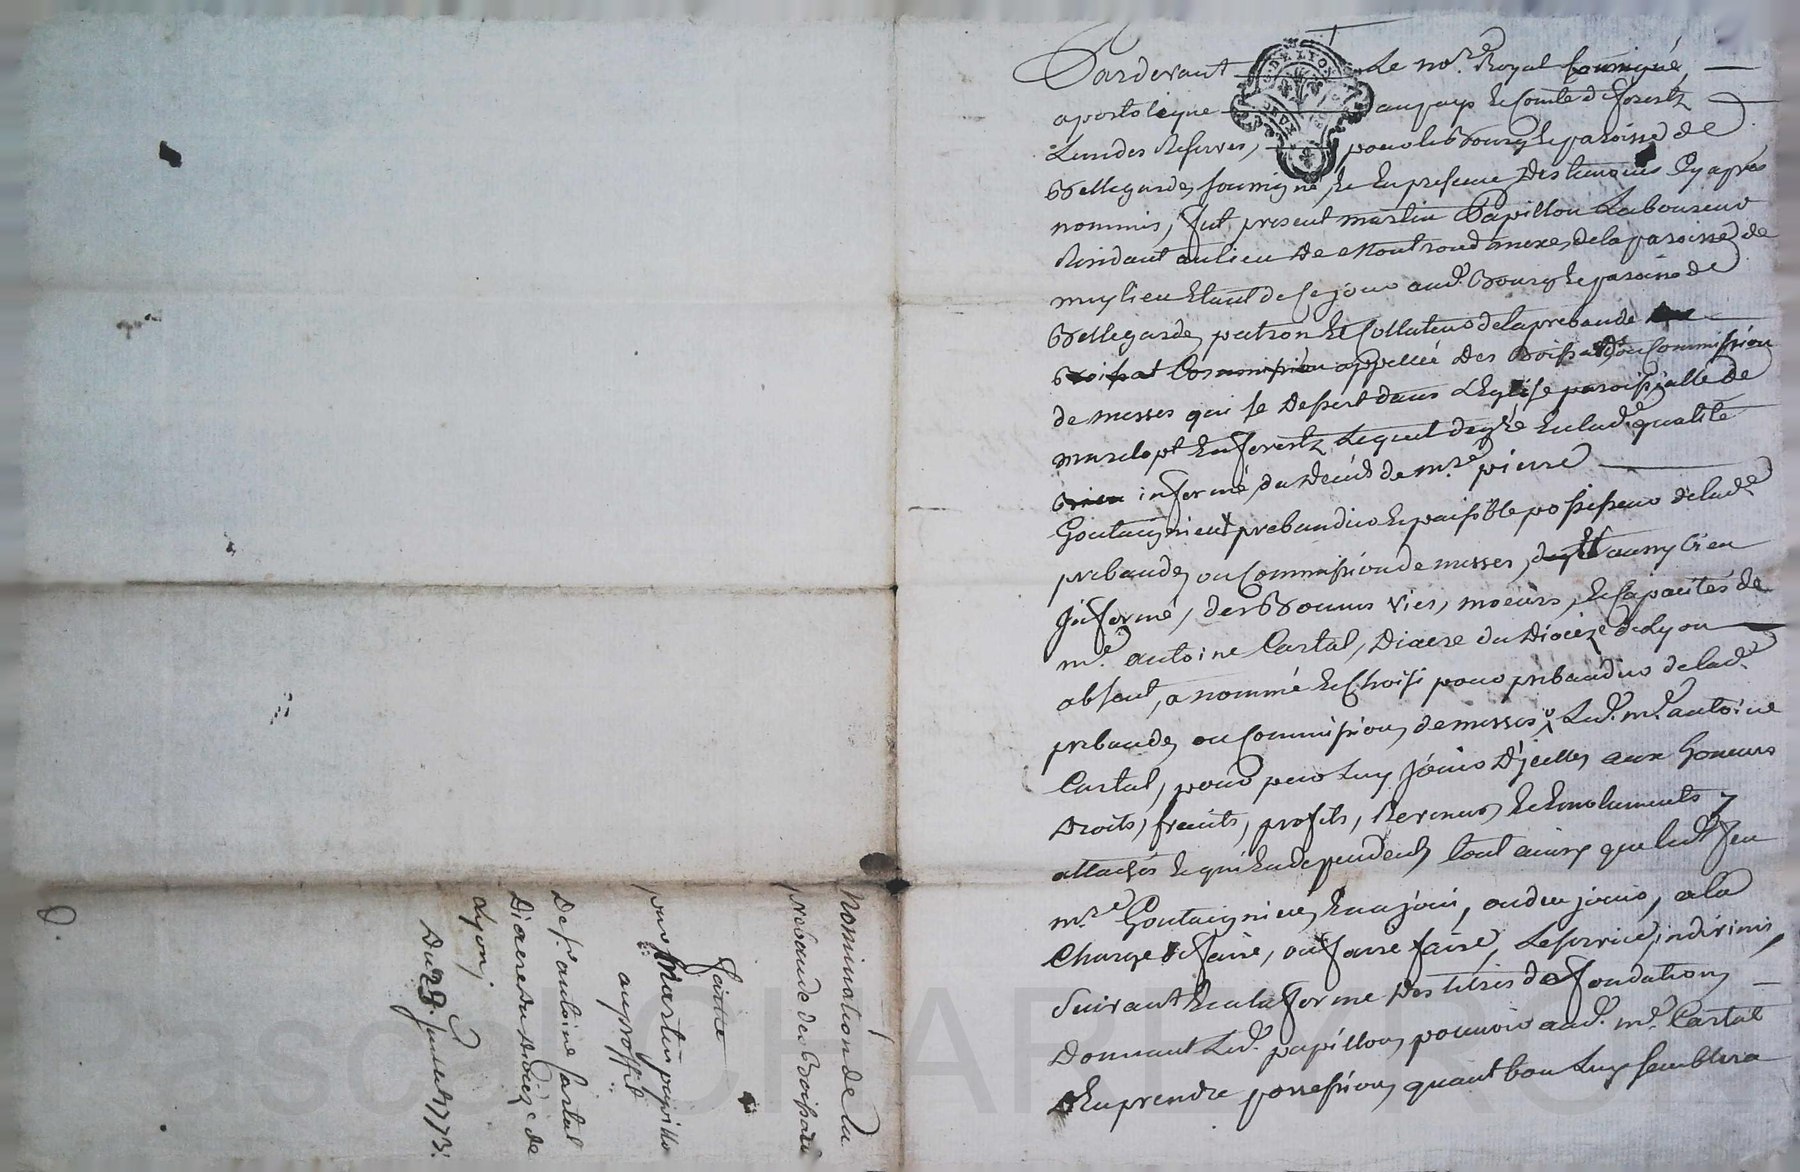 Pardevant Le no.re Royal soussigné,
apostolique au pays & Comté de forestz
L'un des Reserves, pour le Bourg & paroisse de
Bellegarde, soussigné, & En presence Des temoins Cy après
nommés, fut present martin Papillon Laboureur
Residant au lieu De Montrond anexe, de la paroisse de
meylieu Etant de sejour aud.t Bourg & paroisse de
Bellegarde, patron & Collateur de la prebande
Boissat Commission appellée Des Boissat ou Commission
de messes qui se Dessert dans L'Eglise paroissialle De
marclopt En forestz Lequel de gré En lad.e qualité
informé, du deces de m.re pierre
Goutaignieu prebandier & paisible possesseur de lad.e
prebande, ou Commission de messes, aussy bien
informé, des Bonnes vies, moeurs, & Capacités de
m.e antoine Cartal, Diacre du Diocèze de Lyon
absent, a nommé & Choisi pour prebandier de lad.e
prebande, ou Commission, de messes, Led.t m.e antoine
Cartal, pour par Luy joüir D'jcelles aux honeurs
Droits, fruits, profits, Revenus, & Emoluments
attachés & qui En dependent, tout ainsy que led.t feu
m.re Goutaignieu, En a joüi, ou deu joüir, a la
Charge de faire, ou faire faire, Le service, indivinis,
Suivant & a la forme Des titres de fondation,
Donnant Led.t papillon, pouvoir aud.t m.e Cartal
D'En prendre possession, quant bon Luy semblera
nomination de la
prebande des Boissats
faitte
par Martin papillo
au proffit
De s.r antoine Cartal
Diacre du Diocèze de
Lyon,
Du 29.e juillet 1773.